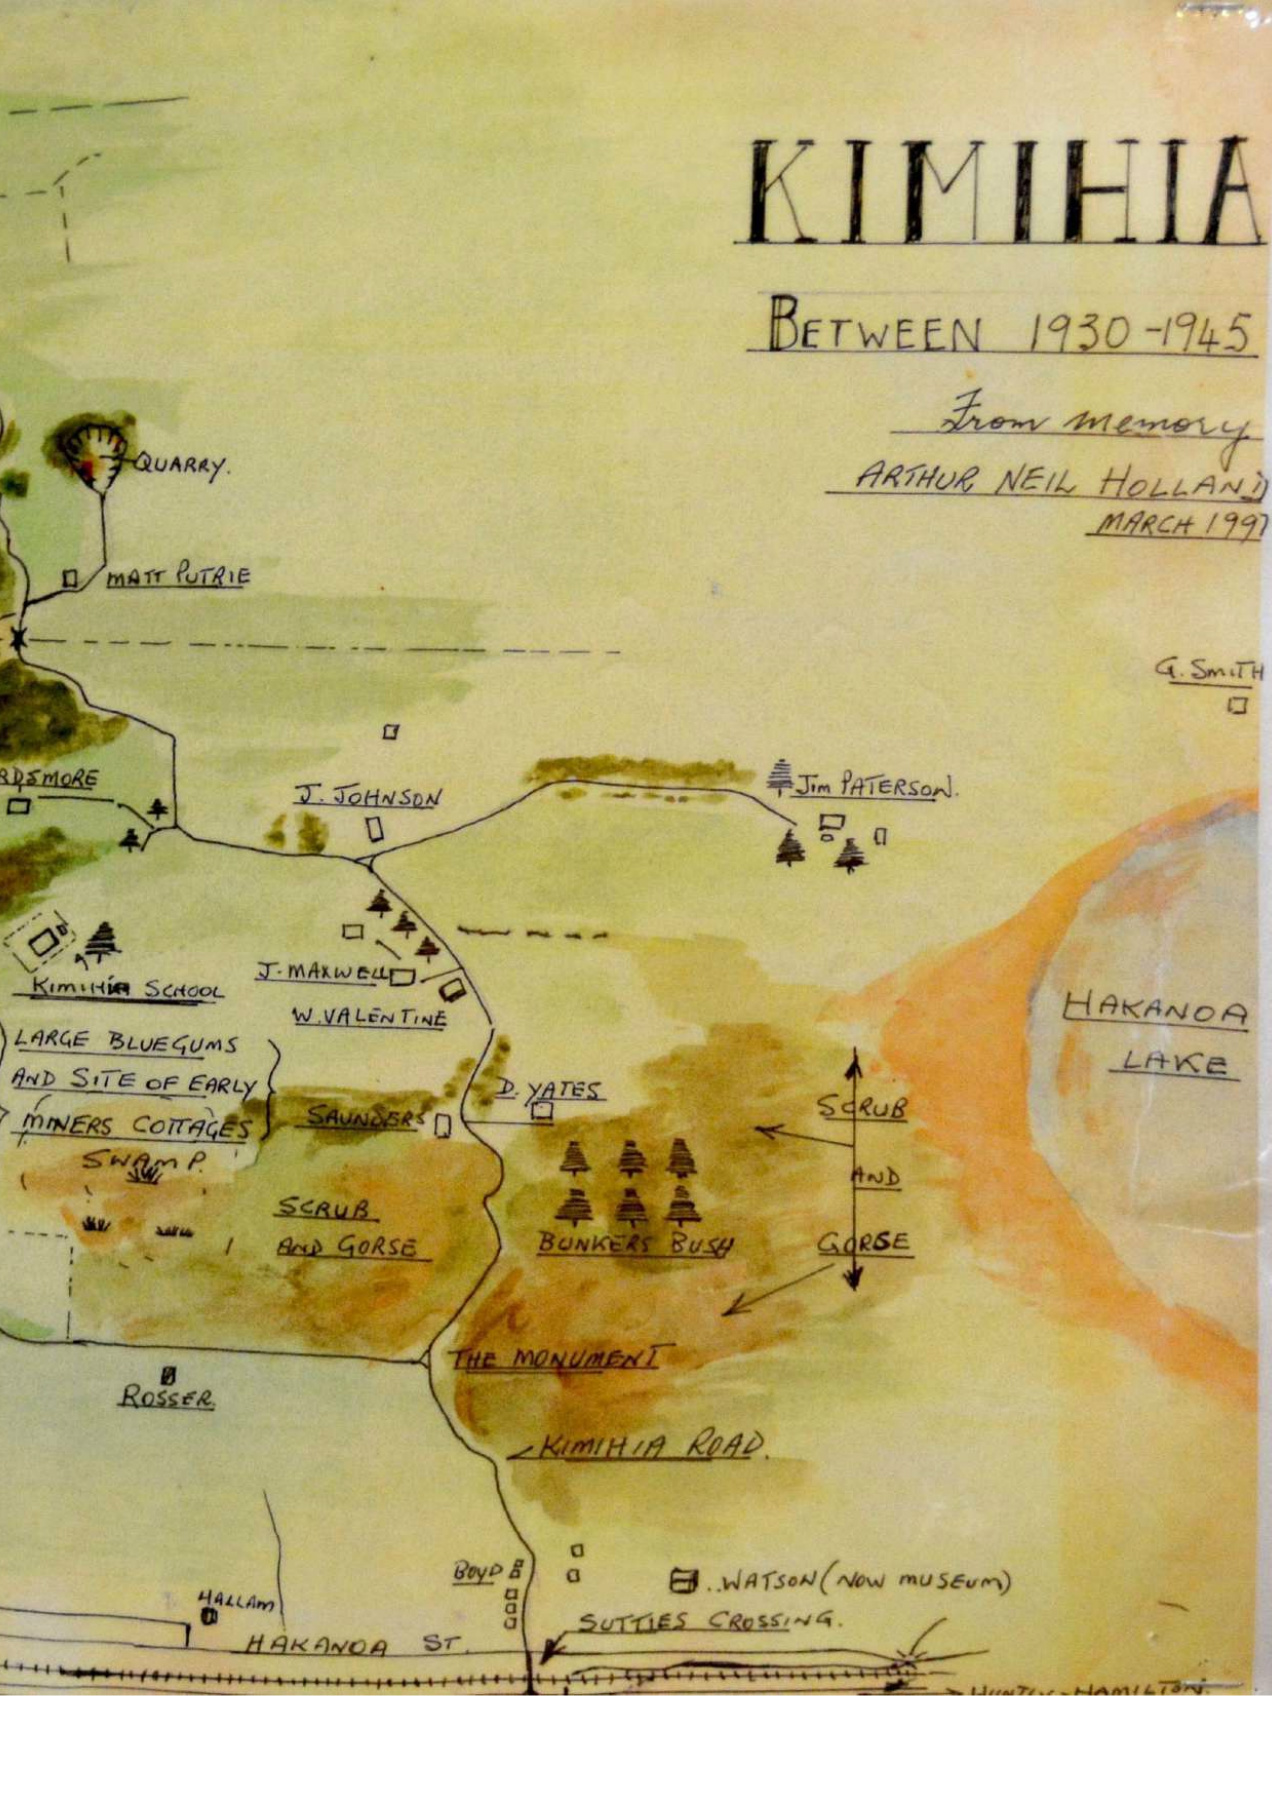 KIMIHIA
BETWEEN 1930-1945
From memory
ARTHUR NEIL HOLLAND
MARCH 1997
QUARRY.
MATT PUTRIE
G. SMITH
RDSMORE
J. JOHNSON
Jim PATERSON.
J. MAXWELL
KIMIHIA SCHOOL
W. VALENTINE
HAKANOA
LAKE
LARGE BLUEGUMS
AND SITE OF EARLY
MINERS COTTAGES
D. YATES
SAUNDERS
SCRUB
AND
GORSE
SWAMP.
SCRUB
AND GORSE
BUNKERS BUSH
THE MONUMENT
ROSSER
KIMIHIA ROAD.
BOYD
..WATSON (NOW MUSEUM)
HALLAM
SUTTIES CROSSING.
HAKANOA ST.
HUNTLY-HAMILTON.